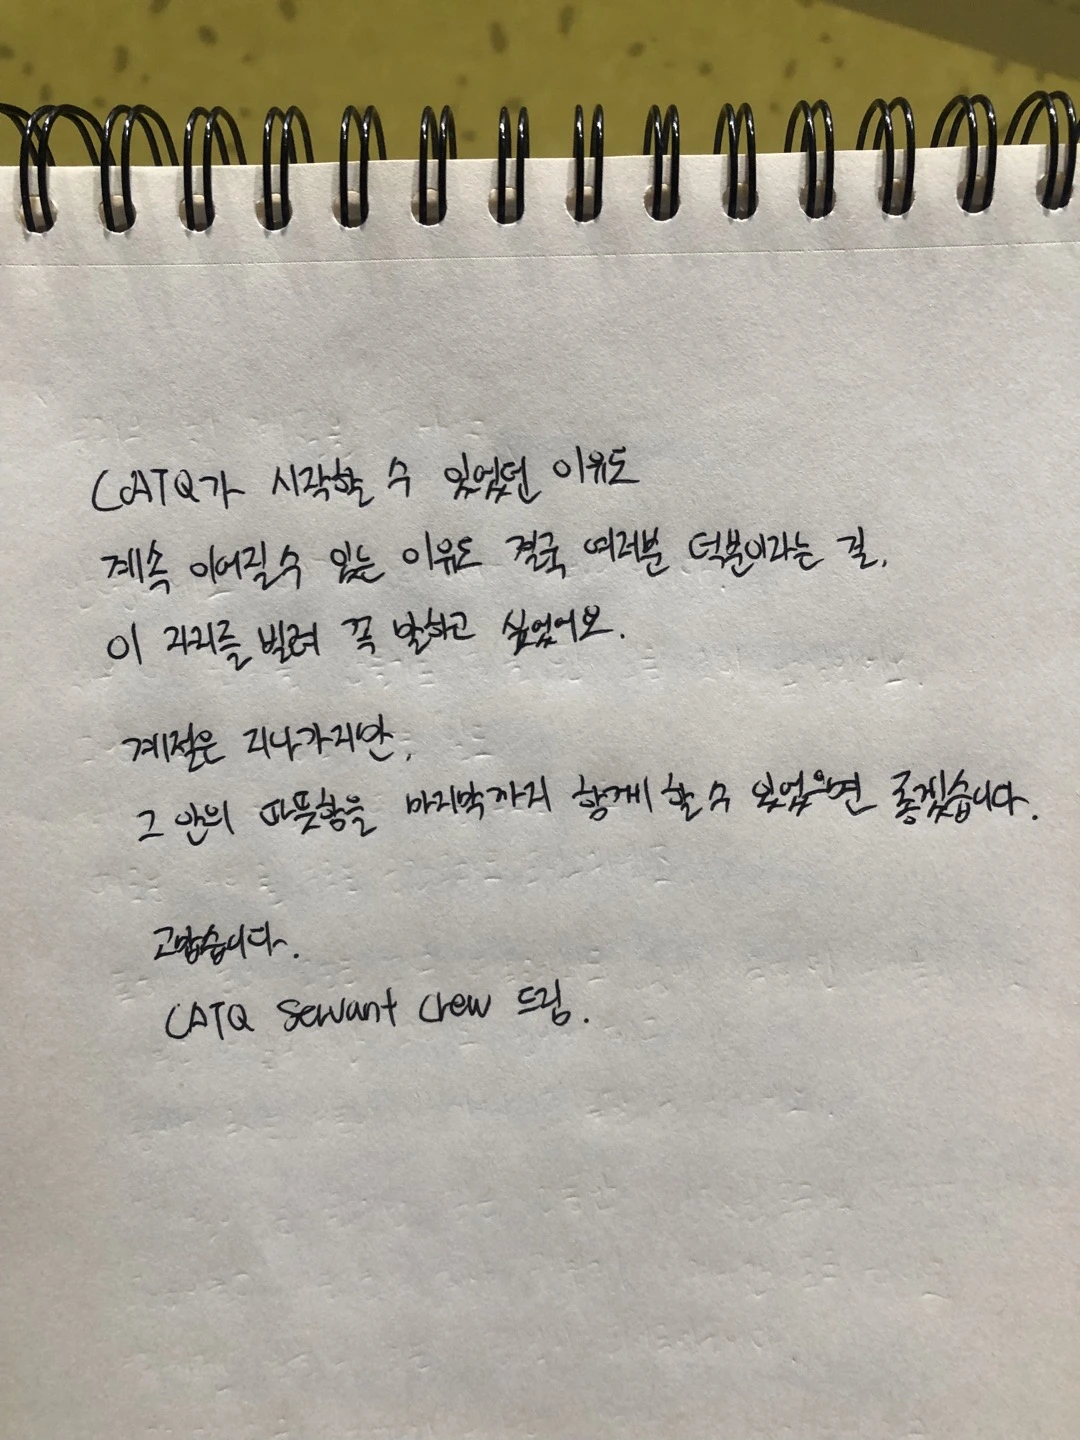 CATQ가 시작할 수 있었던 이유도
계속 이어질 수 있는 이유도 결국 여러분 덕분이라는 걸,
이 자리를 빌려 꼭 말하고 싶었어요.
계절은 지나가지만,
그 안의 따뜻함을 마지막까지 함께 할 수 있었으면 좋겠습니다.
고맙습니다.
CATQ Servant Crew 드림.